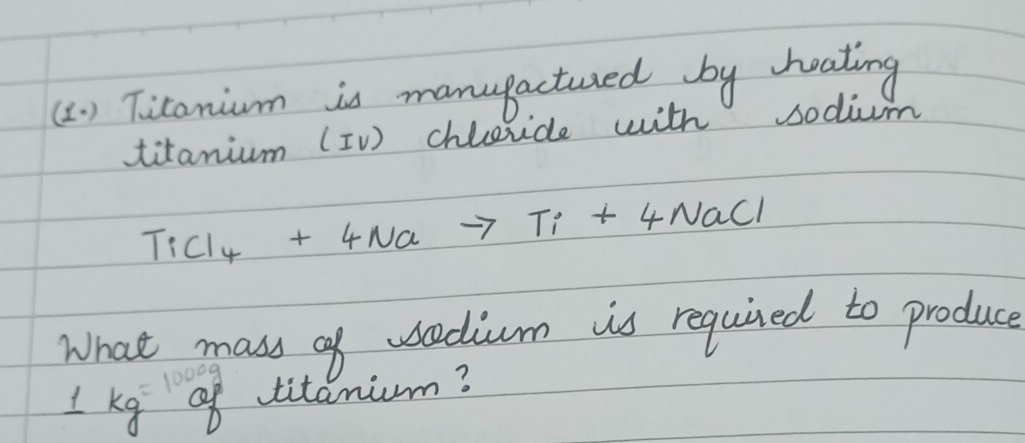 (1.) Titanium is manufactured by heating
titanium (IV) chloride with sodium
TiCl₄ + 4Na → Ti + 4NaCl
What mass of sodium is required to produce
1 kg = 1000g of titanium?